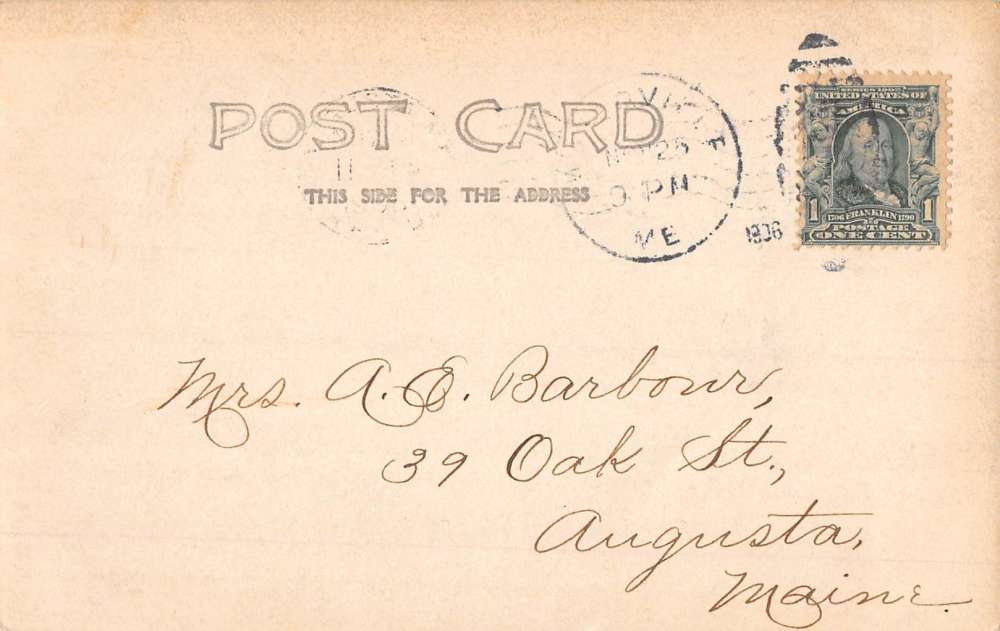 POST CARD
THIS SIDE FOR THE ADDRESS
25
PM
ME
1906
SERIES 1902
UNITED STATES OF
AMERICA
1 1706 FRANKLIN 1790 1
POSTAGE
ONE CENT
Mrs. A. E. Barbour,
39 Oak St.,
Augusta,
Maine.